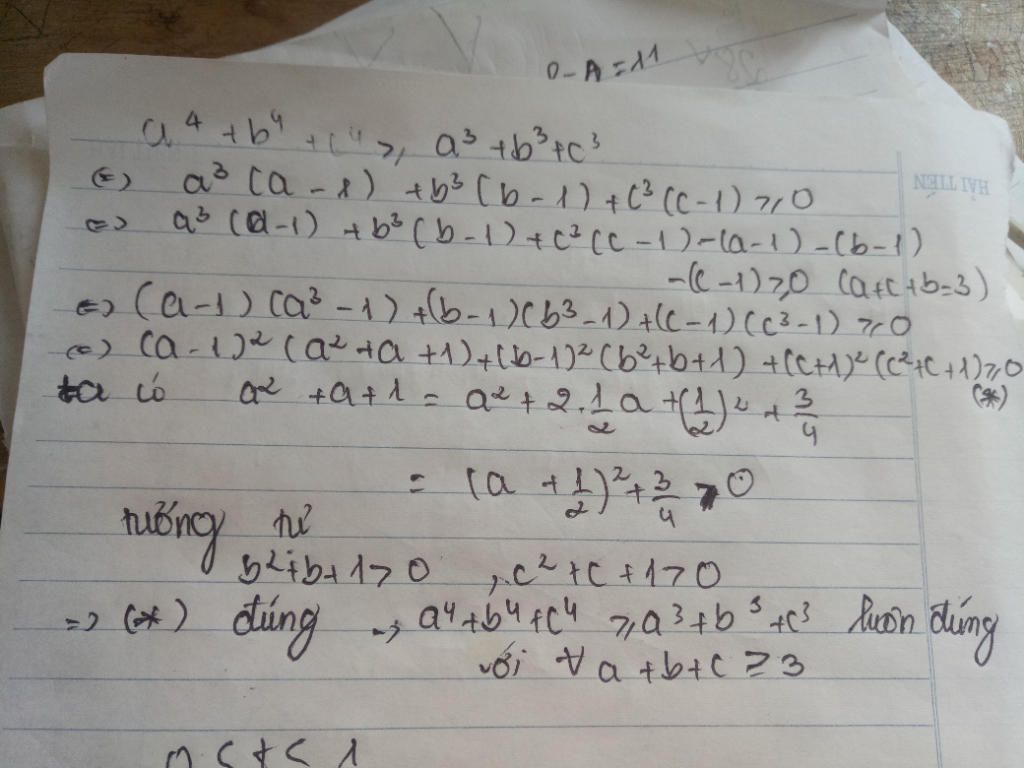 0-A=11
a⁴ + b⁴ + c⁴ ≥, a³ + b³ + c³
(=) a³ (a - 1) + b³ (b - 1) + c³ (c - 1) ≥, 0
(=) a³ (a - 1) + b³ (b - 1) + c³ (c - 1) - (a - 1) - (b - 1)
- (c - 1) ≥, 0 (a + c + b = 3)
(=) (a - 1) (a³ - 1) + (b - 1) (b³ - 1) + (c - 1) (c³ - 1) ≥, 0
(=) (a - 1)² (a² + a + 1) + (b - 1)² (b² + b + 1) + (c + 1)² (c² + c + 1) ≥, 0
(*)
ta có a² + a + 1 = a² + 2.1/2 a + (1/2)² + 3/4
= (a + 1/2)² + 3/4 > 0
tướng tư
b² + b + 1 > 0 , c² + c + 1 > 0
=> (*) đúng -> a⁴ + b⁴ + c⁴ ≥, a³ + b³ + c³ luôn đúng
với ∀ a + b + c ≥ 3
HẢI TIẾN